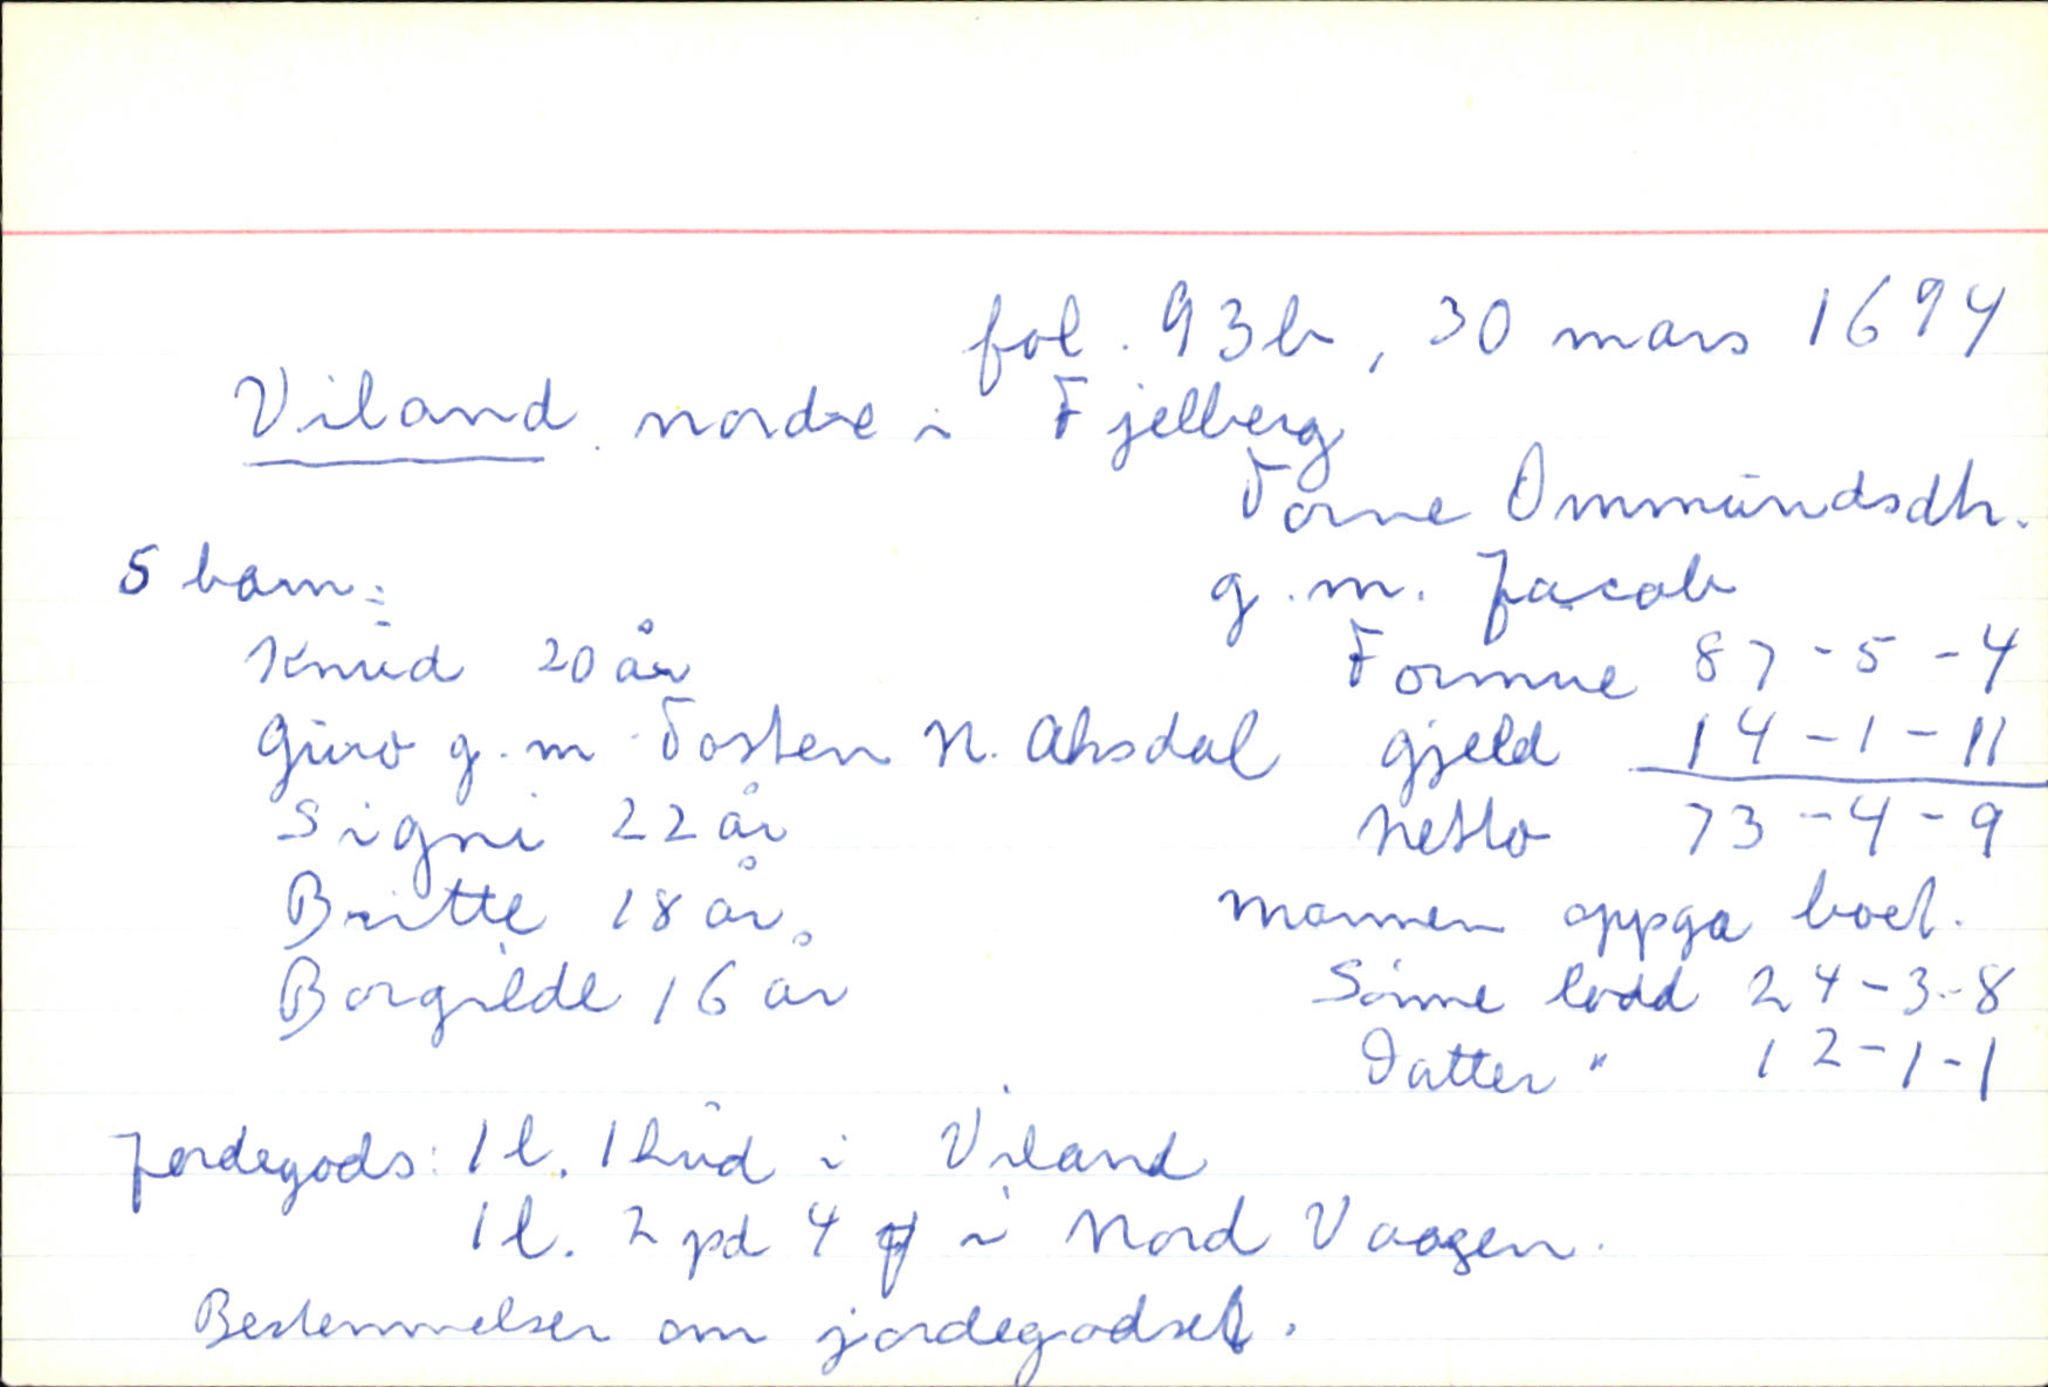 fol. 93b, 30 mars 1694
Viland nordre i Fjelberg
Torne Ommundsdtr.
5 barn: g.m. Jacob
Knud 20 år Formue 87-5-4
Guro g.m. Tosten N. Aksdal gjeld 14-1-11
Signi 22 år Netto 73-4-9
Britte 18 år. mannen oppga boet.
Borgilde 16 år Sønne lodd 24-3-8
Datter " 12-1-1
Jordegods: 1 l. 1 hud i Viland
1 l. 2 pd 4 i Nord Vaagen.
Bestemmelser om jordegodset.